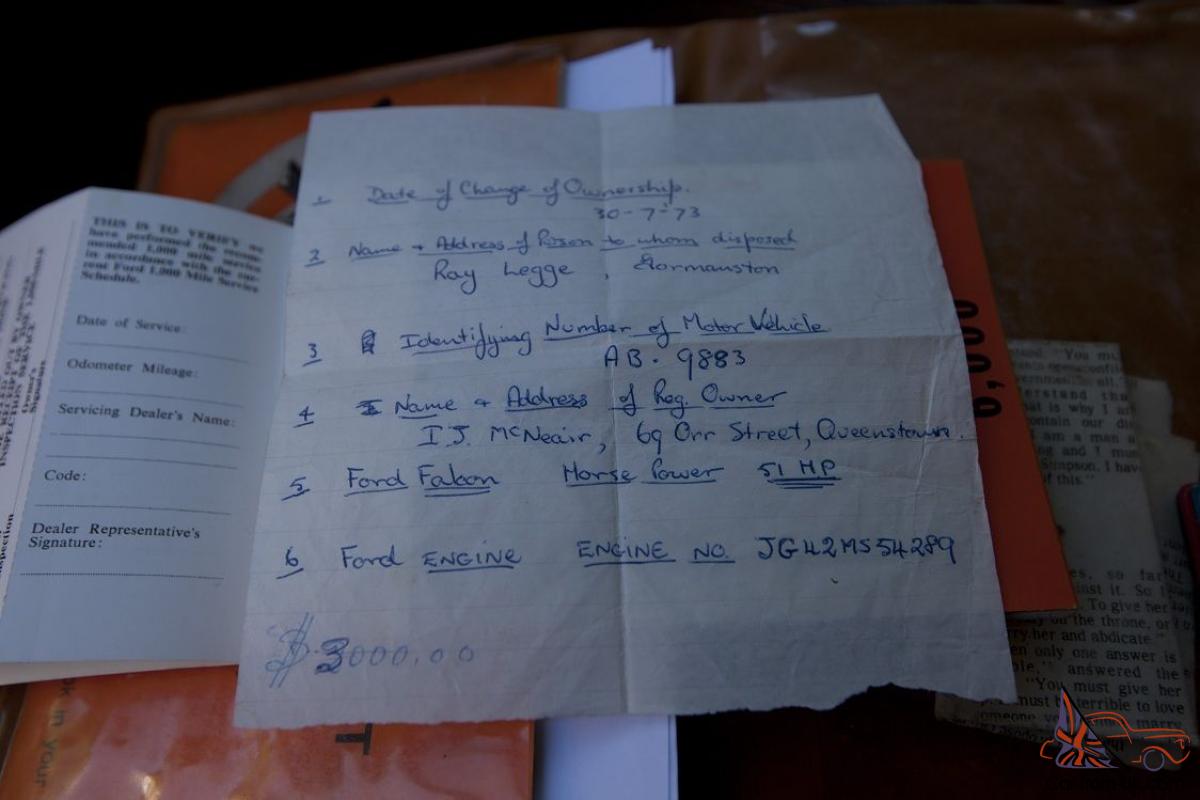 1 Date of Change of Ownership.
30-7-73
2 Name + Address of Person to whom disposed
Ray Legge, Gormanston
3 Identifying Number of Motor Vehicle
AB. 9883
4 Name + Address of Reg. Owner
I.J. McNeair, 69 Orr Street, Queenstown.
5 Ford Falcon Horse Power 51 HP
6 Ford ENGINE ENGINE NO. JG42MS54289
$3000.00
THIS IS TO VERIFY we
have performed the recom-
mended 1,000 mile service
in accordance with the cur-
rent Ford 1,000 Mile Service
Schedule.
Date of Service:
Odometer Mileage:
Servicing Dealer's Name:
Code:
Dealer Representative's
Signature:
Owner's
Signature
6,000
"You mu
is why I a
ontain our di
am a man a
ng and I mus
Simpson. I have
of this."
es, so far
inst it. So I
To give her
on the throne, or
rry her and abdicate."
en only one answer is
ble," answered the
"You must give her
must be terrible to love
someone you marry
k in your
T